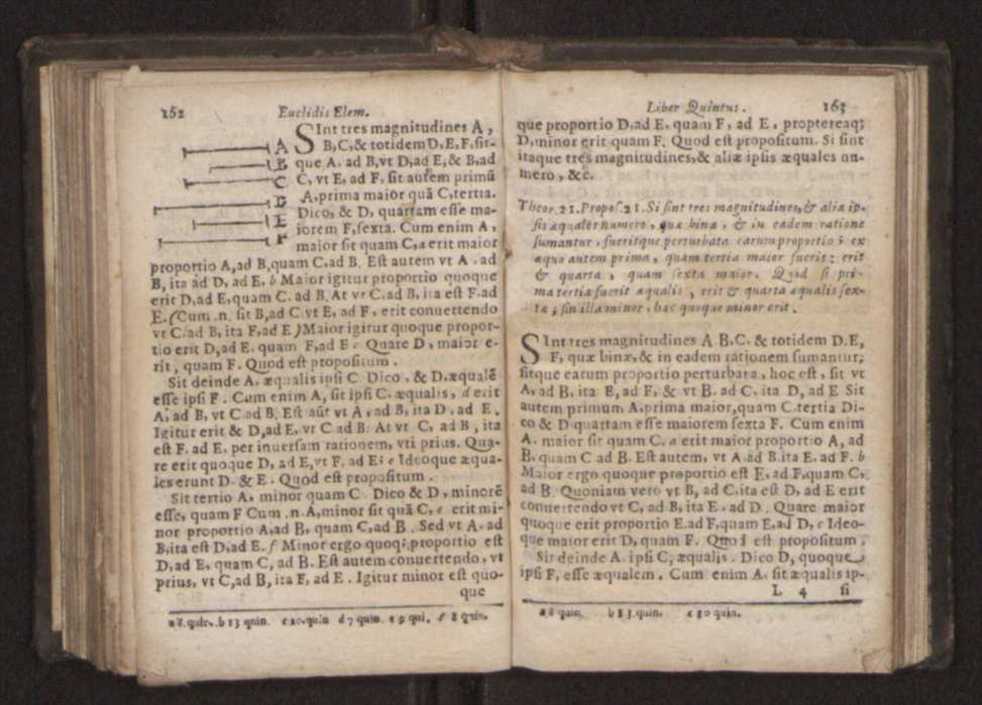 162 Euclidis Elem.
SInt tres magnitudines A,
B, C, & totidem D, E, F, sit-
que A. ad B, vt D, ad E, & B, ad
C, vt E, ad F. sit autem primū
A, prima maior quā C, tertia.
Dico, & D, quartam esse ma-
iorem F, sexta. Cum enim A,
maior sit quam C, a erit maior
A
B
C
D
E
F
proportio A, ad B, quam C. ad B. Est autem vt A. ad
B, ita ad D, ad E. b Maior igitur proportio quoque
erit D, ad E, quam C. ad B. At vt C. ad B, ita est F. ad
E. (Cum .n. sit B, ad C vt E, ad F, erit conuertendo
vt C. ad B, ita F, ad E) Maior igitur quoque propor-
tio erit D, ad E. quam F, ad E c Quare D, maior e-
rit, quam F. Quod est propositum.
Sit deinde A. æqualis ipsi C. Dico, & D. æqualē
esse ipsi F. Cum enim A, sit ipsi C. æqualis, d erit
A. ad B, vt C ad B. Est aūt vt A. ad B, ita D. ad E.
Igitur erit & D, ad E, vt C ad B. At vt C, ad B, ita
est F. ad E. per inuersam rationem, vti prius. Qua-
re erit quoque D, ad E, vt F, ad E: e Ideoque æqua-
les erunt D. & E. Quod est propositum.
Sit tertio A. minor quam C. Dico & D, minorē
esse, quam F Cum .n. A, minor sit quā C, e erit mi-
nor proportio A, ad B, quam C, ad B. Sed vt A. ad
B, ita est D, ad E. f Minor ergo quoq; proportio est
D, ad E, quam C, ad B. Est autem conuertendo, vt
prius, vt C, ad B, ita F, ad E. Igitur minor est quo-
que
a 8. quin. b 13 quin. c 10. quin d 7 quin. e 9 qui. f 8 quin.
Liber Quintus. 163
que proportio D, ad E, quam F, ad E, proptereaq;
D, minor erit quam F. Quod est propositum. Si sint
itaque tres magnitudines, & aliæ ipsis æquales nu-
mero, &c.
Theor. 21. Propos. 21. Si sint tres magnitudines, & aliæ ip-
sis æquales numero, quæ binæ, & in eadem ratione
sumantur, fueritque perturbata earum proportio; ex
æquo autem prima, quam tertia maior fuerit: erit
& quarta, quam sexta maior. Quod si pri-
ma tertiæ fuerit æqualis, erit & quarta æqualis sex-
tæ; sin illa minor, hæc quoque minor erit.
SInt tres magnitudines A B, C, & totidem D. E,
F, quæ binæ, & in eadem rationem sumantur;
sitque earum proportio perturbata, hoc est, sit vt
A, ad B, ita E, ad F, & vt B. ad C, ita D, ad E Sit
autem primum A, prima maior, quam C. tertia Di-
co & D quartam esse maiorem sexta F. Cum enim
A. maior sit quam C. a erit maior proportio A, ad
B, quam C ad B. Est autem, vt A. ad B. ita E. ad F. b
Maior ergo quoque proportio est E, ad F, quam C,
ad B. Quoniam vero vt B, ad C. ita est D, ad E erit
conuertendo vt C, ad B, ita E. ad D. Quare maior
quoque erit proportio E. ad F, quam E, ad D, c Ideo-
que maior erit D, quam F. Quod est propositum.
Sit deinde A. ipsi C, æqualis. Dico D, quoque
ipsi F, esse æqualem. Cum enim A. sit æqualis ip-
L 4 si
a 8 quin. b 13. quin. c 10 quin.